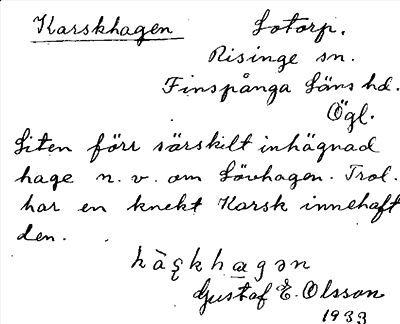 Karskhagen Sotorp.
Risinge sn.
Finspånga Läns hd.
Ögl.
Liten förr särskilt inhägnad
hage n. v. om Lövhagen. Trol.
har en knekt Karsk innehaft
den.
hagən
Gustaf E. Olsson
1933